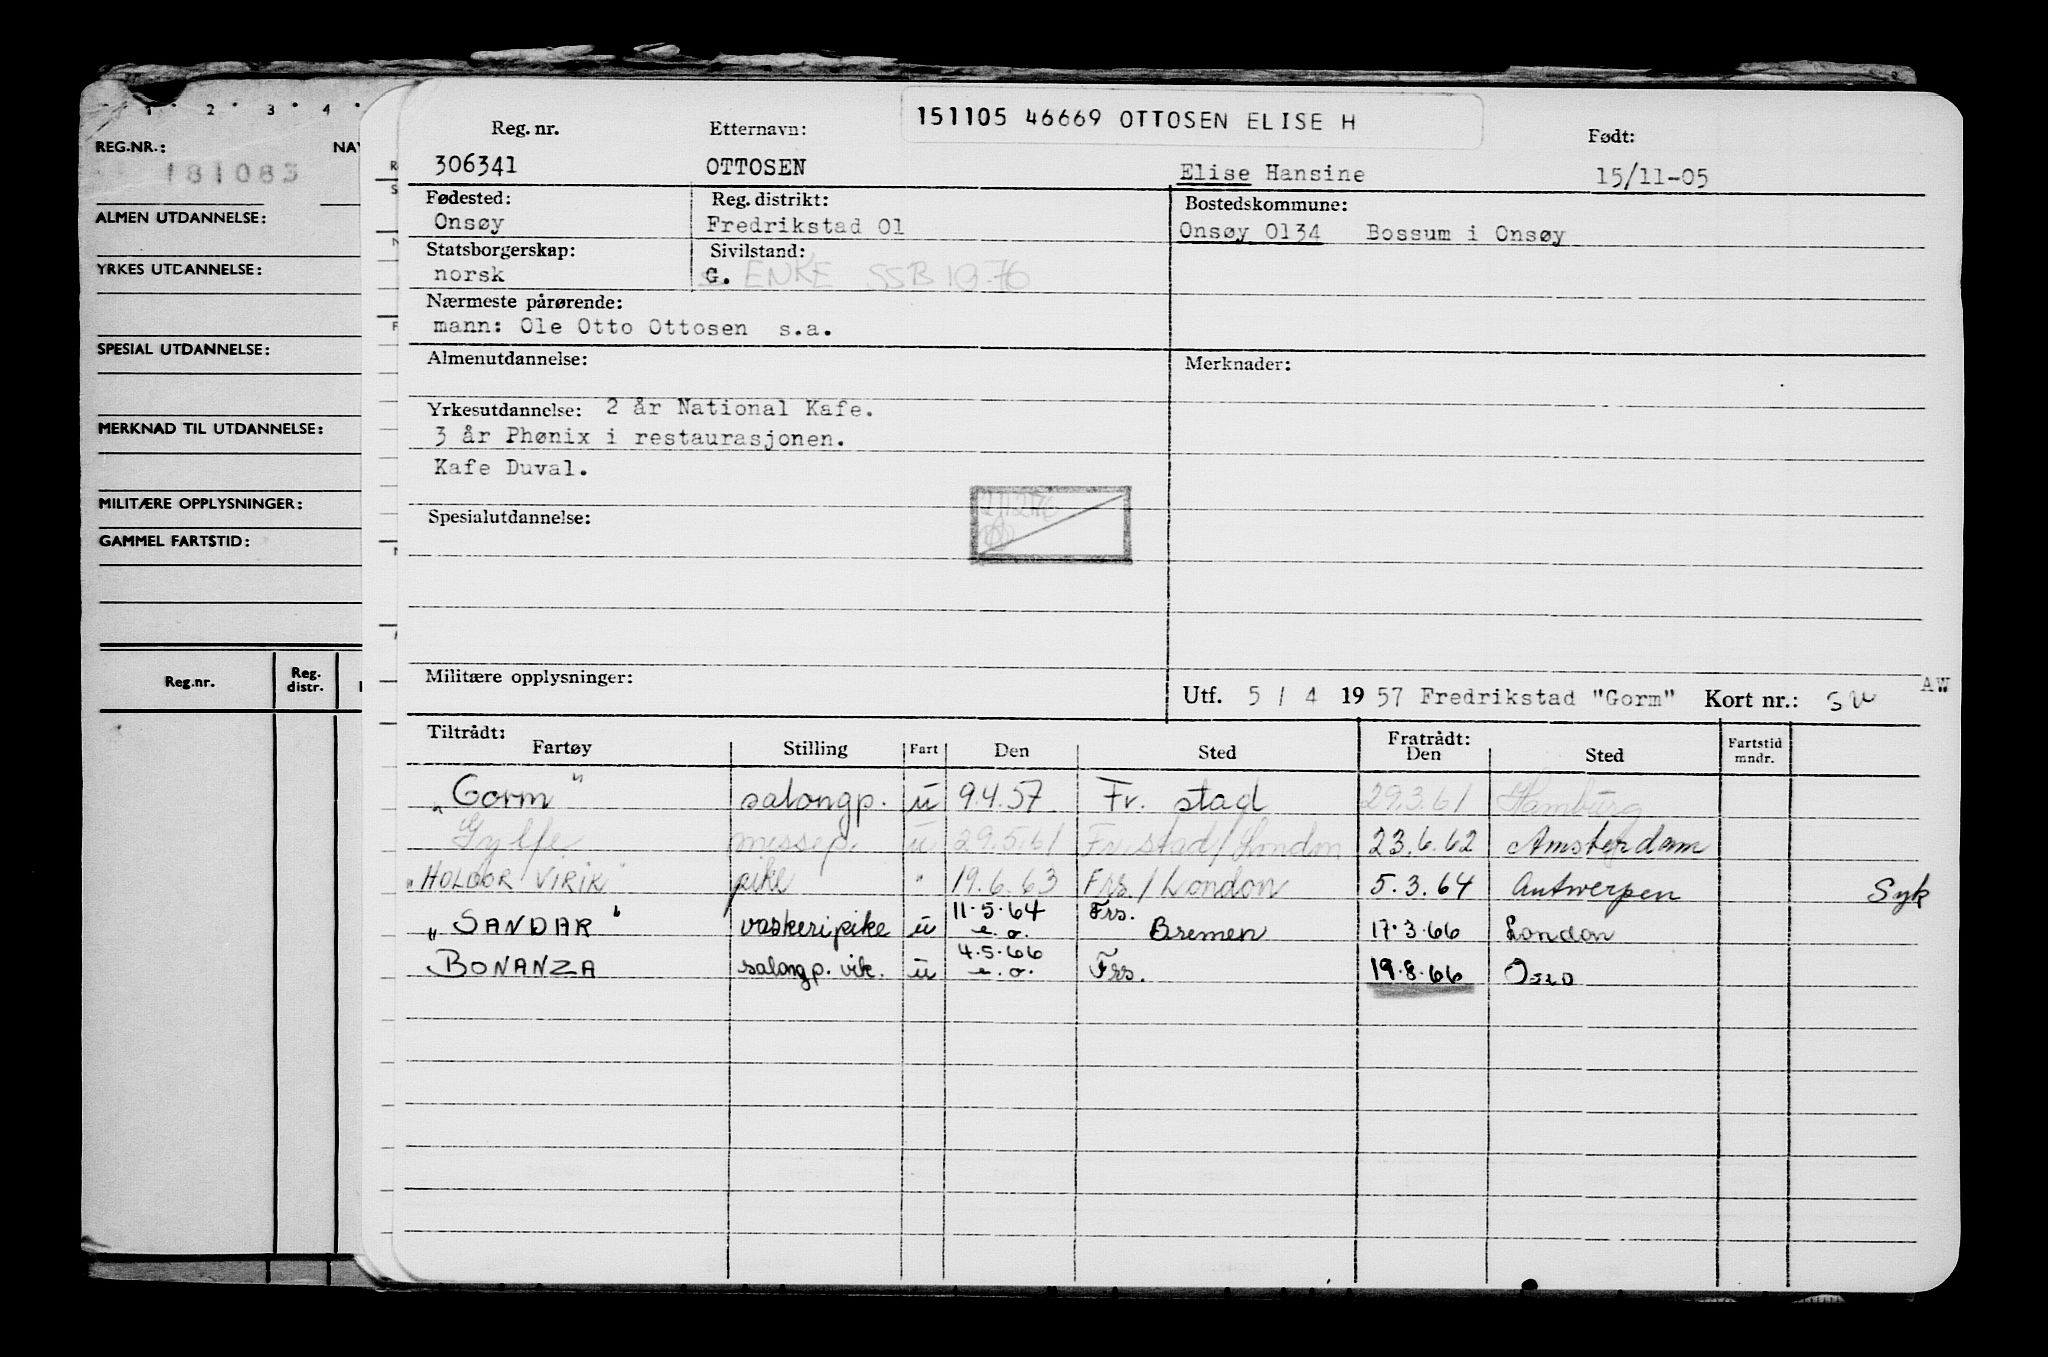 1 2 3 4
REG.NR.: NAV
181083
ALMEN UTDANNELSE:
YRKES UTDANNELSE:
SPESIAL UTDANNELSE:
MERKNAD TIL UTDANNELSE:
MILITÆRE OPPLYSNINGER:
GAMMEL FARTSTID:
Reg.nr. Reg. distr.
151105 46669 OTTOSEN ELISE H
Reg. nr. Etternavn: Født:
306341 OTTOSEN Elise Hansine 15/11-05
Fødested: Reg. distrikt: Bostedskommune:
Onsøy Fredrikstad 01 Onsøy 0134 Bossum i Onsøy
Statsborgerskap: Sivilstand:
norsk G. ENKE SSB 1976
Nærmeste pårørende:
mann: Ole Otto Ottosen s.a.
Almenutdannelse: Merknader:
Yrkesutdannelse: 2 år National Kafe.
3 år Phønix i restaurasjonen.
Kafe Duval.
Spesialutdannelse:
Militære opplysninger:
Utf. 5 / 4 19 57 Fredrikstad "Gorm" Kort nr.: AW
Tiltrådt: Fratrådt:
Fartøy Stilling Fart Den Sted Den Sted Fartstid mndr.
"Gorm" salongp. u 9.4.57 Fr. stad 29.3.61 Hamburg
Gylfe messep. u 29.5.61 Fr.stad/London 23.6.62 Amsterdam
"HOLDOR VIRIK" pike " 19.6.63 Frs./London 5.3.64 Antwerpen Syk
"SANDAR" vaskeripike u 11.5.64 e.o. Frs. Bremen 17.3.66 London
BONANZA salongp. vik. u 4.5.66 e.o. Frs. 19.8.66 Oslo